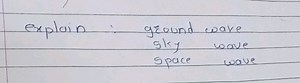 explain : ground wave
sky wave
space wave